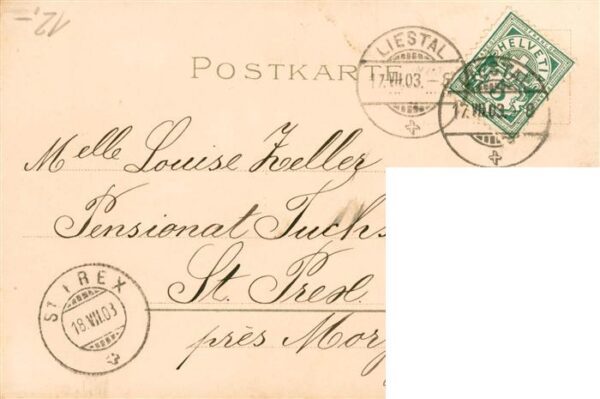 12,-
LIESTAL
17.VII.03.-8
HELVETIA
LIESTAL
17.VII.03.-8
POSTKARTE
Melle Louise Zeller
Pensionat Fuchs
St. Prex
près Morg
ST PREX
18.VII.03